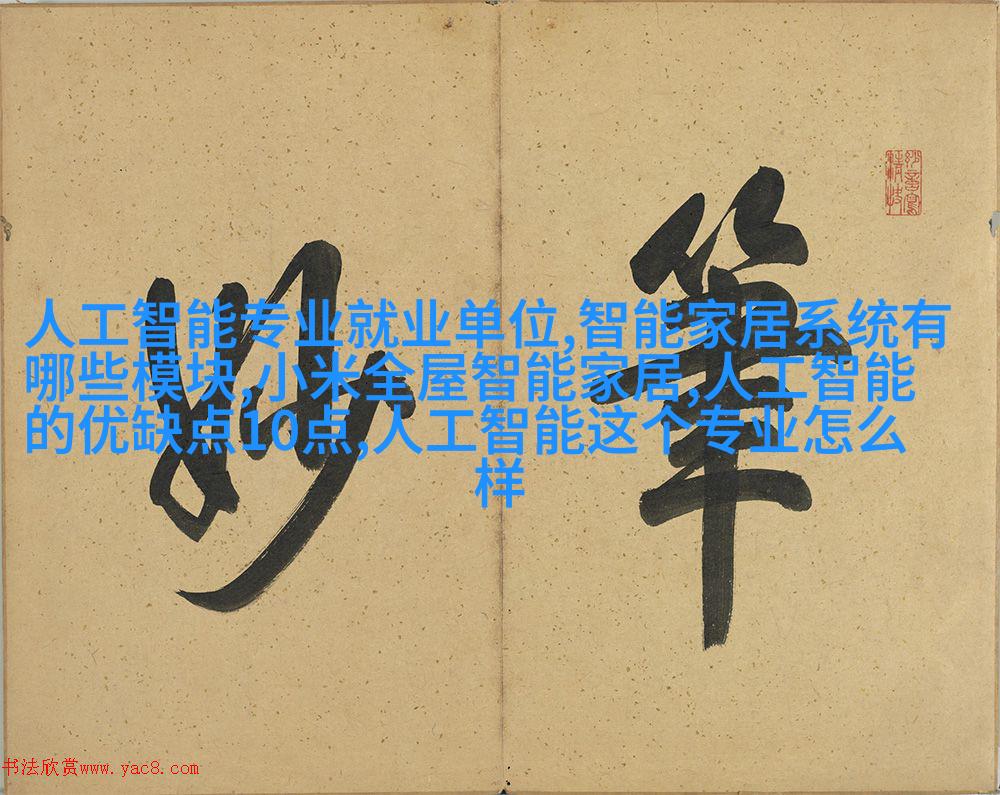 筆妙
人工智能专业就业单位,智能家居系统有
哪些模块,小米全屋智能家居,人工智能
的优缺点10点,人工智能这个专业怎么
样
书法欣赏www.yac8.com